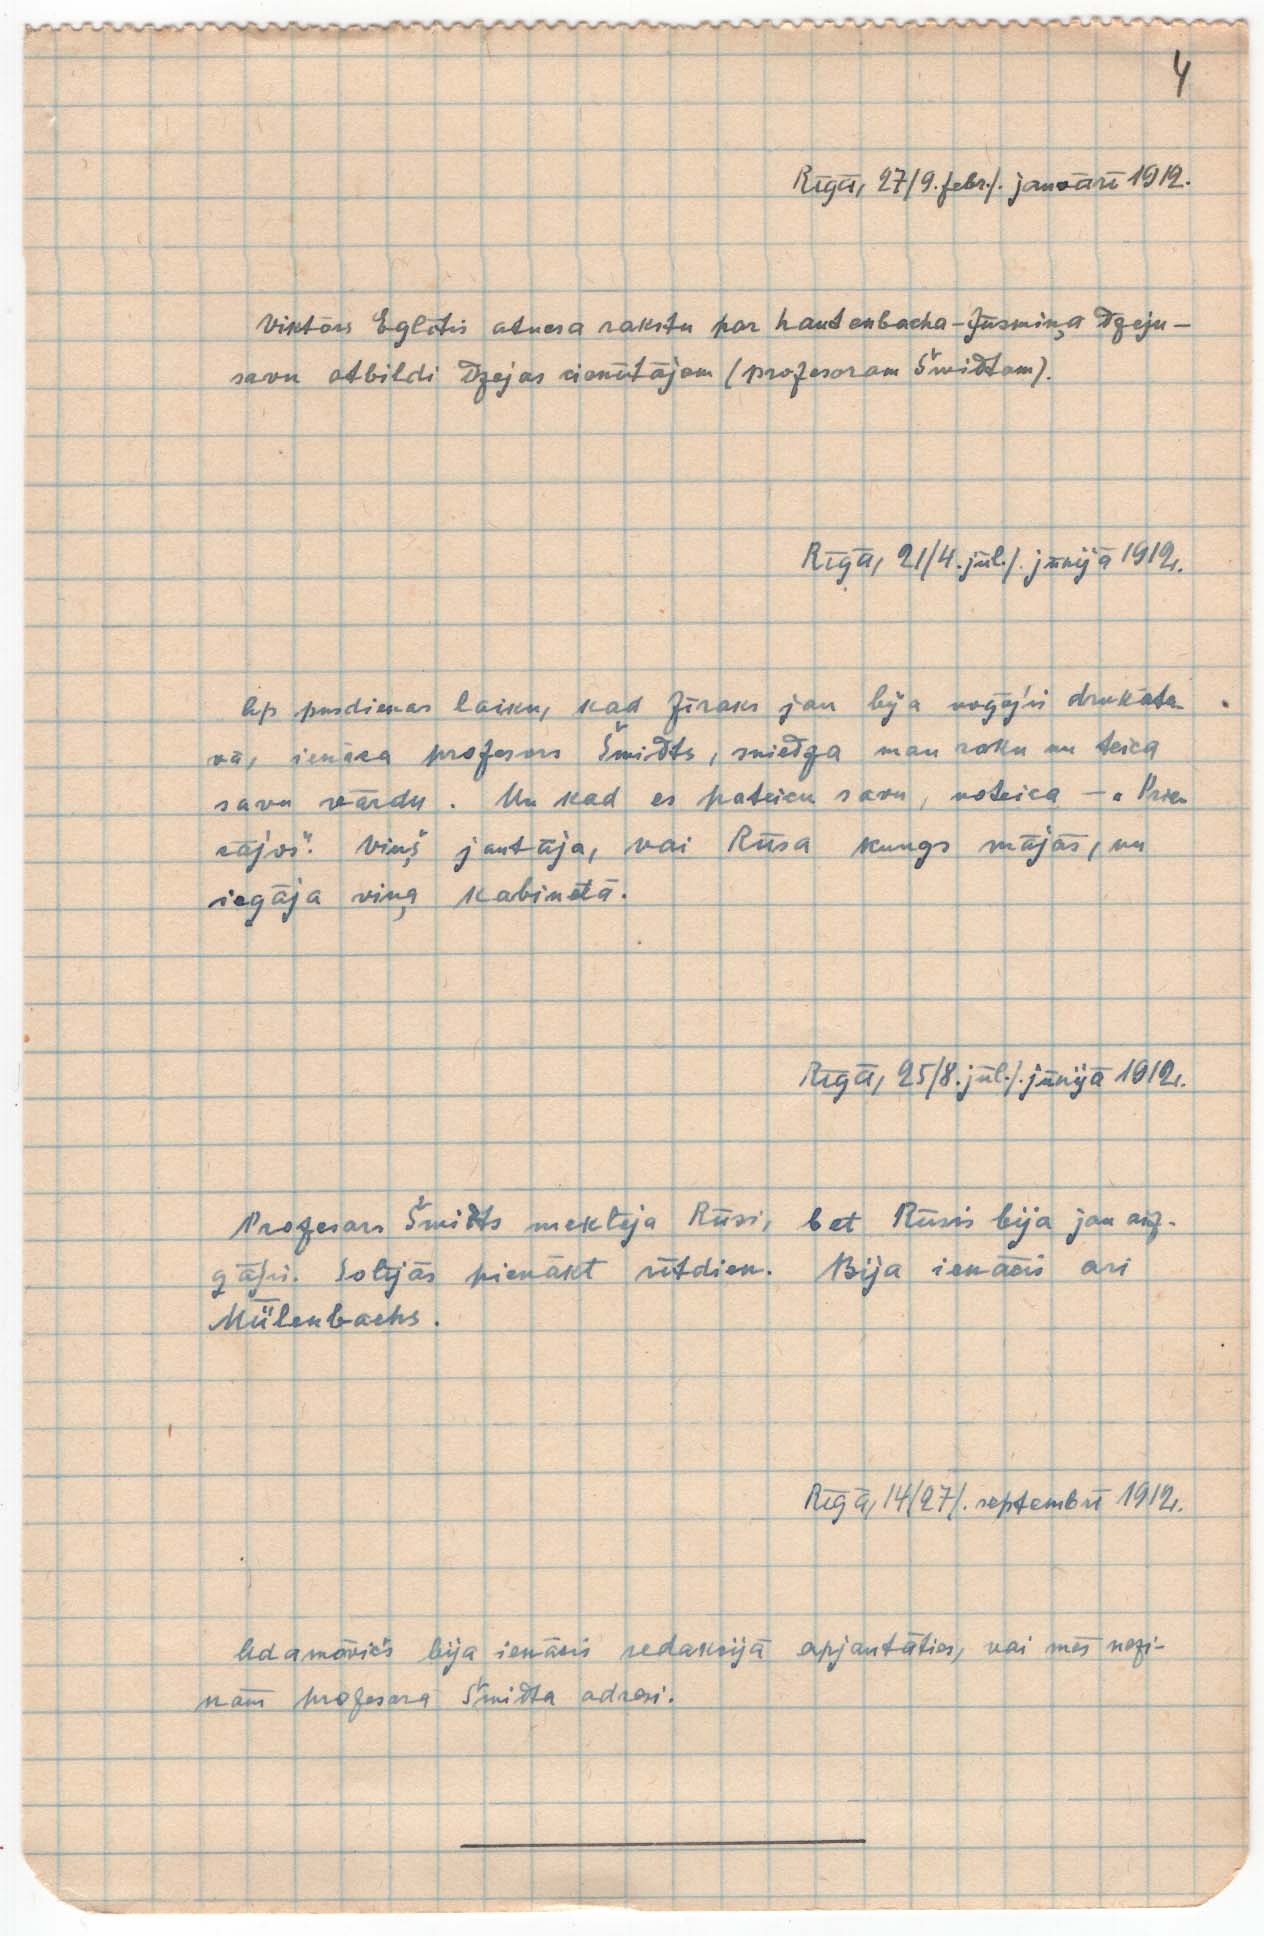 4
Rīgā, 27/9.febr./. janvārī 1912.
Viktors Eglītis atnesa rakstu par Lautenbacha-Jūsmiņa dzeju –
savu atbildi dzejas cienītājam (profesoram Šmidtam).
Rīgā, 21/4.jūl./. jūnijā 1912.
Ap pusdienas laiku, kad Zīraks jau bija nogājis drukāta-
vā, ienāca profesors Šmidts, sniedza man roku un teica
savu vārdu. Un kad es pateicu savu, noteica – „Prie-
cājos". Viņš jautāja, vai Rūsa kungs mājās, un
iegāja viņa kabinetā.
Rīgā, 25/8.jūl./. jūnijā 1912.
Profesors Šmidts meklēja Rūsi, bet Rūsis bija jau aiz-
gājis. Solījās pienākt rītdien. Bija ienācis arī
Mǖlenbachs.
Rīgā, 14/27/. septembrī 1912.
Adamovičs bija ienācis redakcijā apjautāties, vai mēs nezi-
nām profesora Šmidta adresi.